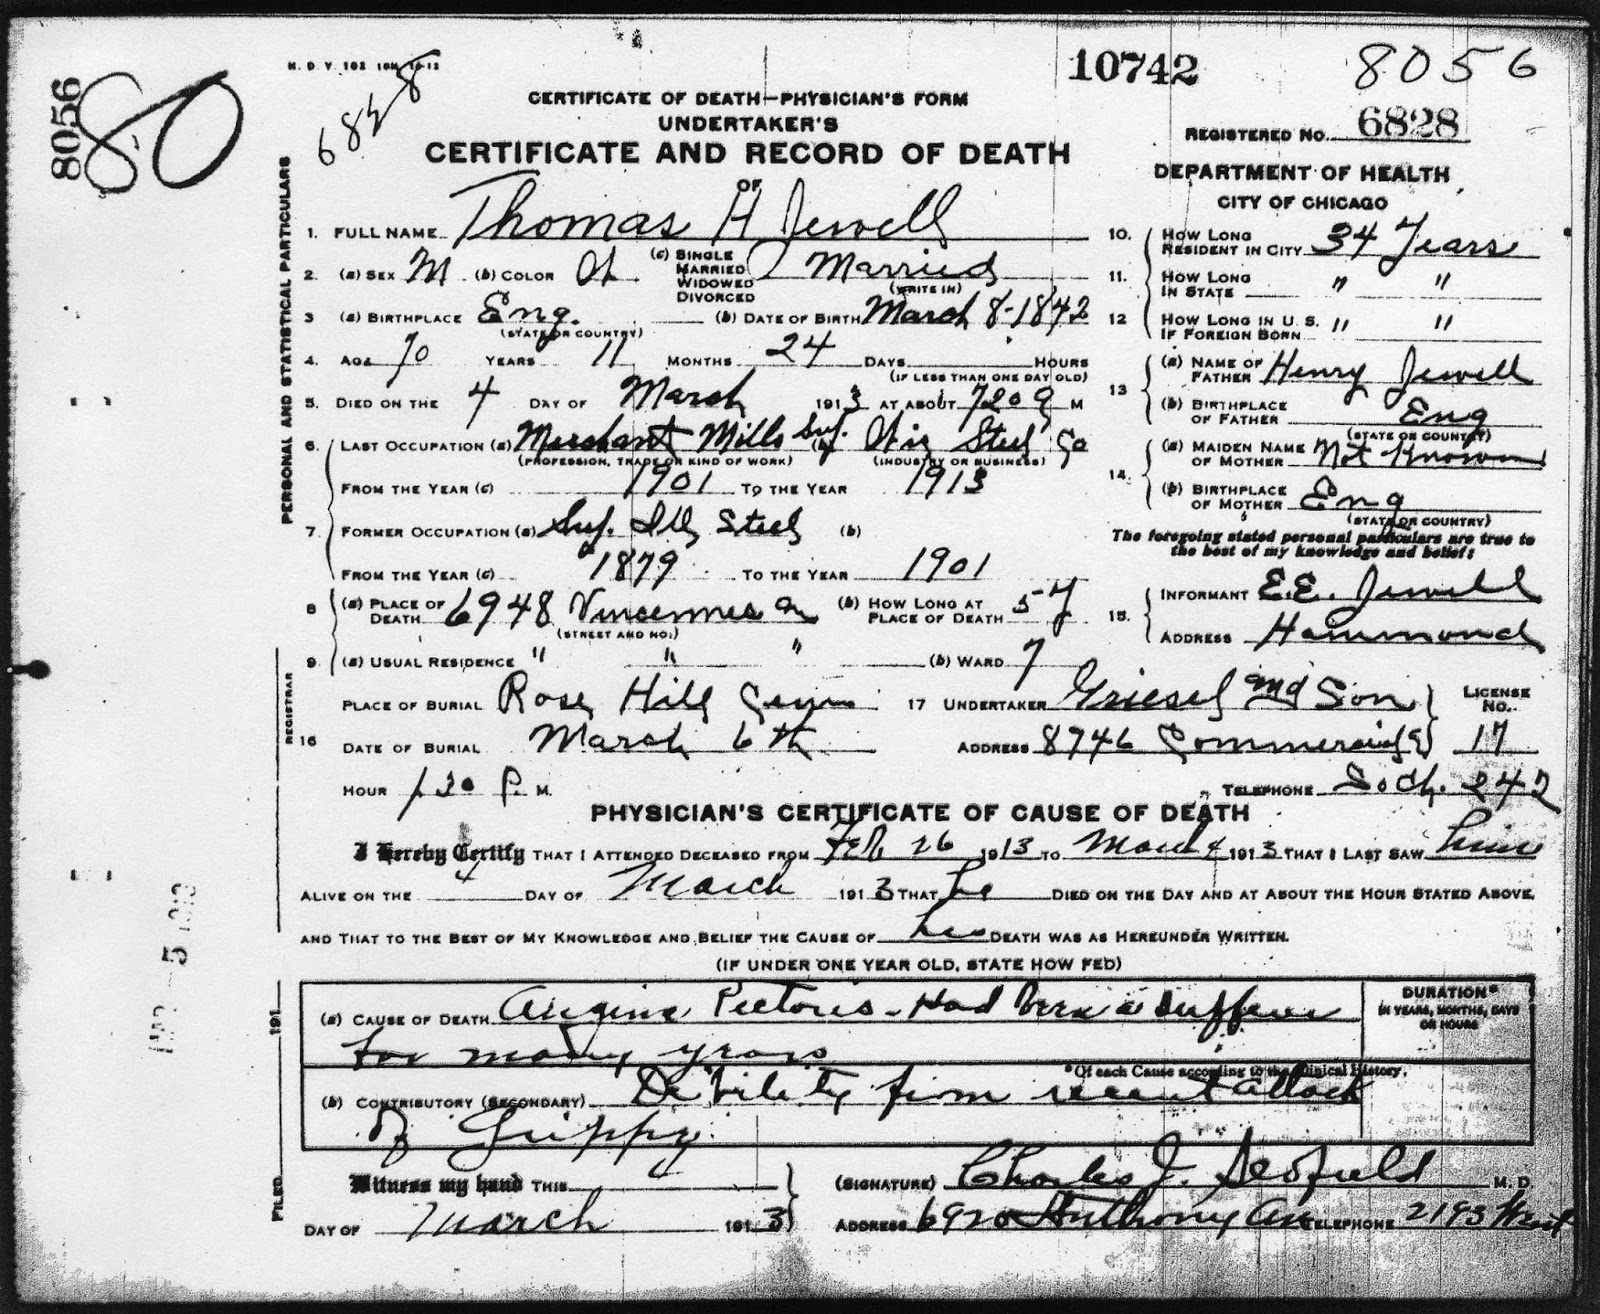 H. D. V. 102 10M 10-12
10742
8056
8056
80
6828
CERTIFICATE OF DEATH—PHYSICIAN'S FORM
UNDERTAKER'S
REGISTERED NO. 6828
CERTIFICATE AND RECORD OF DEATH
OF
DEPARTMENT OF HEALTH
CITY OF CHICAGO
PERSONAL AND STATISTICAL PARTICULARS
1. FULL NAME Thomas H Jewell
2. (a) SEX M (b) COLOR (c) SINGLE MARRIED WIDOWED DIVORCED Married
(WRITE IN)
3 (a) BIRTHPLACE Eng. (b) DATE OF BIRTH March 8-1842
(STATE OR COUNTRY)
4. AGE 70 YEARS 11 MONTHS 24 DAYS HOURS
(IF LESS THAN ONE DAY OLD)
5. DIED ON THE 4 DAY OF March 1913 AT ABOUT 720 M
6. LAST OCCUPATION (a) Merchant Mills Sup. (b) Steel Co
(PROFESSION, TRADE OR KIND OF WORK) (INDUSTRY OR BUSINESS)
FROM THE YEAR (c) 1901 TO THE YEAR 1913
7. FORMER OCCUPATION (a) Sup. Ill Steel (b)
FROM THE YEAR (c) 1879 TO THE YEAR 1901
8 (a) PLACE OF DEATH 6948 Vincennes av (b) HOW LONG AT PLACE OF DEATH 5 y
(STREET AND NO.)
9. (a) USUAL RESIDENCE " " " (b) WARD 7
10. HOW LONG RESIDENT IN CITY 34 Years
11. HOW LONG IN STATE " "
12 HOW LONG IN U. S. IF FOREIGN BORN " "
13 (a) NAME OF FATHER Henry Jewell
(b) BIRTHPLACE OF FATHER Eng
(STATE OR COUNTRY)
14. (a) MAIDEN NAME OF MOTHER Not Known
(b) BIRTHPLACE OF MOTHER Eng
(STATE OR COUNTRY)
The foregoing stated personal particulars are true to
the best of my knowledge and belief:
15. INFORMANT E.E. Jewell
ADDRESS Hammond
REGISTRAR
16 PLACE OF BURIAL Rose Hill Cem
DATE OF BURIAL March 6th
HOUR 1 30 P. M.
17 UNDERTAKER Griesel and Son LICENSE NO. 17
ADDRESS 8746 Commercial
TELEPHONE So Ch. 242
PHYSICIAN'S CERTIFICATE OF CAUSE OF DEATH
I Hereby Certify THAT I ATTENDED DECEASED FROM Feb 26 1913 TO March 4 1913 THAT I LAST SAW him
ALIVE ON THE 4 DAY OF March 1913 THAT he DIED ON THE DAY AND AT ABOUT THE HOUR STATED ABOVE,
AND THAT TO THE BEST OF MY KNOWLEDGE AND BELIEF THE CAUSE OF his DEATH WAS AS HEREUNDER WRITTEN.
(IF UNDER ONE YEAR OLD, STATE HOW FED)
(a) CAUSE OF DEATH Angina Pectoris - Had been a sufferer
for many years
DURATION*
IN YEARS, MONTHS, DAYS
OR HOURS
*Of each Cause according to the Clinical History.
(b) CONTRIBUTORY (SECONDARY) Debility from recent attack
of Grippe.
Witness my hand THIS
DAY OF March 1913
(SIGNATURE) Charles J. M. D.
ADDRESS 6920 Anthony Av TELEPHONE 2193 West
FILED 191
5 1913